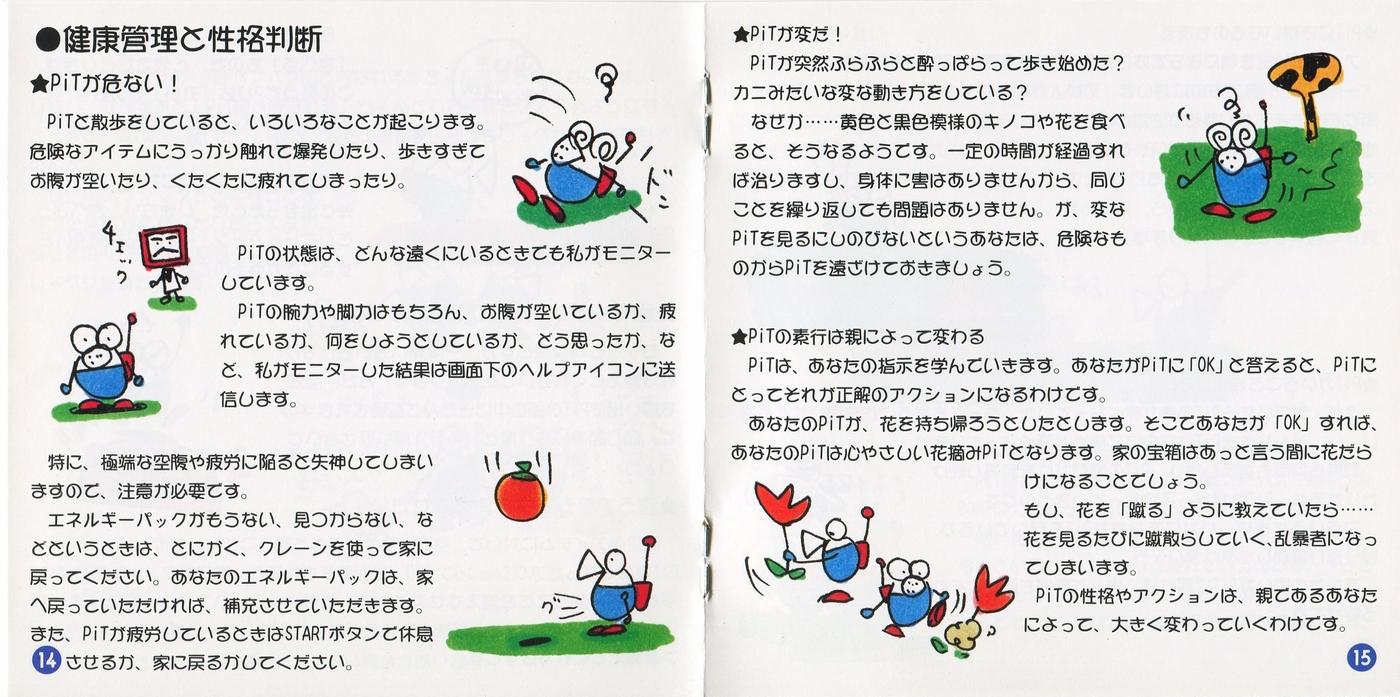 ●健康管理と性格判断
★PiTが危ない！
PiTと散歩をしていると、いろいろなことが起こります。
危険なアイテムにうっかり触れて爆発したり、歩きすぎて
お腹が空いたり、くたくたに疲れてしまったり。
ドシン
4ェ…?
PiTの状態は、どんな遠くにいるときでも私がモニター
しています。
PiTの腕力や脚力はもちろん、お腹が空いているか、疲
れているか、何をしようとしているか、どう思ったか、な
ど、私がモニターした結果は画面下のヘルプアイコンに送
信します。
特に、極端な空腹や疲労に陥ると失神してしまい
ますので、注意が必要です。
エネルギーパックがもうない、見つからない、な
どというときは、とにかく、クレーンを使って家に
戻ってください。あなたのエネルギーパックは、家
へ戻っていただければ、補充させていただきます。
また、PiTが疲労しているときはSTARTボタンで休息
させるか、家に戻るかしてください。
グー
14
★PiTが変だ！
PiTが突然ふらふらと酔っぱらって歩き始めた？
カニみたいな変な動き方をしている？
なぜか……黄色と黒色模様のキノコや花を食べ
ると、そうなるようです。一定の時間が経過すれ
ば治りますし、身体に害はありませんから、同じ
ことを繰り返しても問題はありません。が、変な
PiTを見るにしのびないというあなたは、危険なも
のからPiTを遠ざけておきましょう。
★PiTの素行は親によって変わる
PiTは、あなたの指示を学んでいきます。あなたがPiTに「OK」と答えると、PiTに
とってそれが正解のアクションになるわけです。
あなたのPiTが、花を持ち帰ろうとしたとします。そこであなたが「OK」すれば、
あなたのPiTは心やさしい花摘みPiTとなります。家の宝箱はあっと言う間に花だら
けになることでしょう。
もし、花を「蹴る」ように教えていたら……
花を見るたびに蹴散らしていく、乱暴者になっ
てしまいます。
PiTの性格やアクションは、親であるあなた
によって、大きく変わっていくわけです。
15